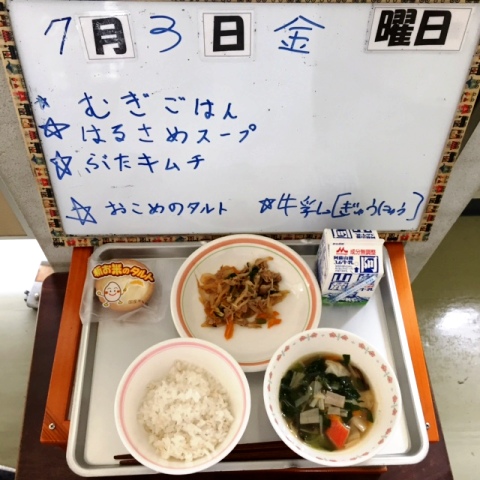 7月3日 金曜日
☆ むぎごはん
☆ はるさめスープ
☆ ぶたキムチ
☆ おこめのタルト ☆ 牛乳[ぎゅうにゅう]
お米のタルト
成分無調整